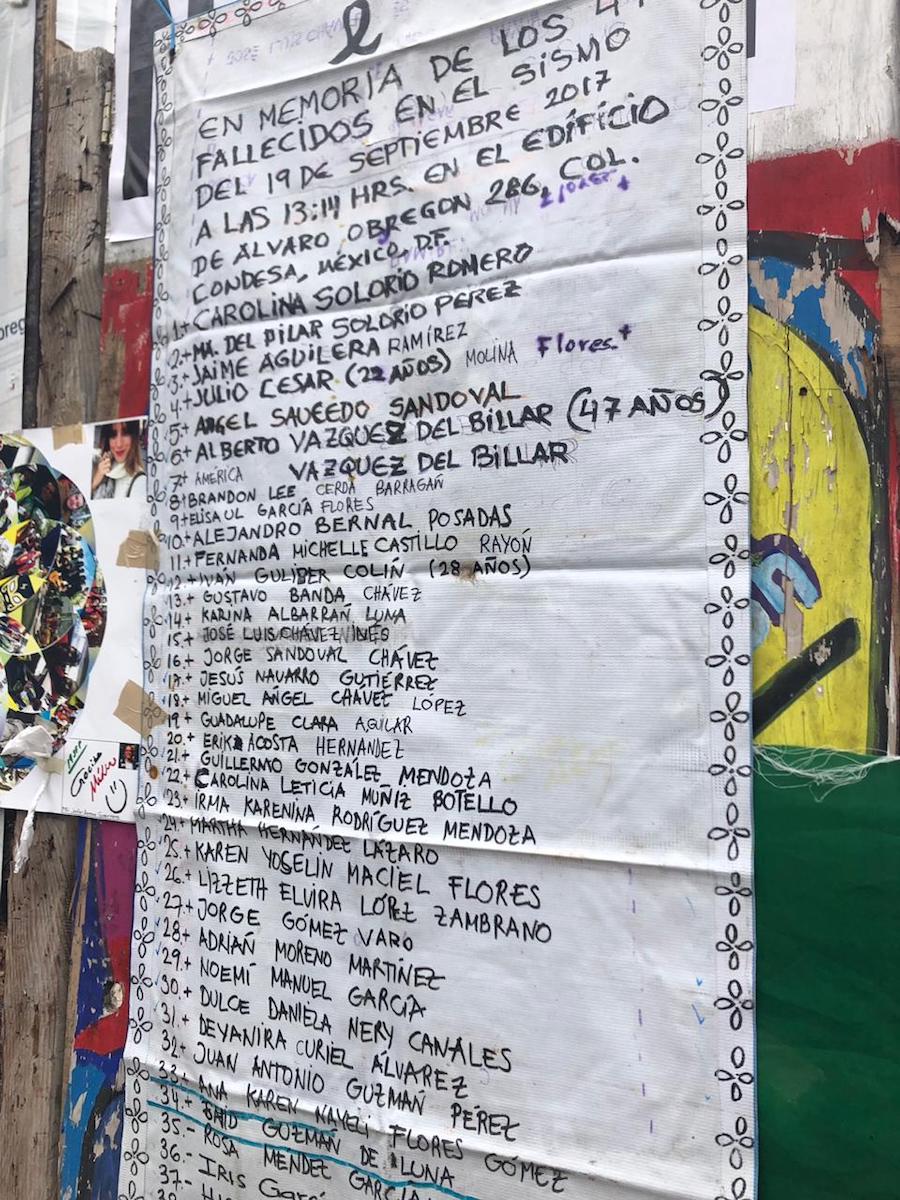 EN MEMORIA DE LOS 4
FALLECIDOS EN EL SISMO
DEL 19 DE SEPTIEMBRE 2017
A LAS 13:14 HRS. EN EL EDÍFICIO
DE ÁLVARO OBREGON 286, COL.
CONDESA, MÉXICO, D.F.
1.+ CAROLINA SOLORIO ROMERO
2.+ MA. DEL PILAR SOLORIO PEREZ
3.+ JAIME AGUILERA RAMÍREZ
4.+ JULIO CESAR (22 AÑOS) MOLINA Flores.+
5.+ ANGEL SAUEEDO SANDOVAL
6.+ ALBERTO VAZQUEZ DEL BILLAR (47 AÑOS)
7+ AMERICA VAZQUEZ DEL BILLAR
8+ BRANDON LEE CERDA BARRAGAÑ
9+ ELISAUL GARCÍA FLORES
10.+ ALEJANDRO BERNAL POSADAS
11.+ FERNANDA MICHELLE CASTILLO RAYÓN
12.+ IVÁN GULIBER COLÍN (28 AÑOS)
13.+ GUSTAVO BANDA CHÁVEZ
14.+ KARINA ALBARRAÑ LUNA
15.+ JOSÉ LUIS CHÁVEZ INÉS
16.+ JORGE SANDOVAL CHÁVEZ
17.+ JESÚS NAVARRO GUTIÉRREZ
18.+ MIGUEL ANGEL CHÁVEZ LÓPEZ
19.+ GUADALUPE CLARA AGUILAR
20.+ ERIKA ACOSTA HERNÁNDEZ
21.+ GUILLERMO GONZÁLEZ MENDOZA
22.+ CAROLINA LETICIA MUÑIZ BOTELLO
23.+ IRMA KARENINA RODRÍGUEZ MENDOZA
24.+ MARTHA HERNÁNDEZ LÁZARO
25.+ KAREN YOSELIN MACIEL FLORES
26.+ LIZZETH ELVIRA LÓPEZ ZAMBRANO
27.+ JORGE GÓMEZ VARO
28.+ ADRIAÑ MORENO MARTÍNEZ
29.+ NOEMÍ MANUEL GARCÍA
30.+ DULCE DANIELA NERY CANALES
31.+ DEYANIRA CURIEL ÁLVAREZ
32.+ JUAN ANTONIO GUZMAÑ PÉREZ
33.+ ANA KAREN NAYELI FLORES GÓMEZ
34.+ GUZMÁN DE LUNA
35.- ROSA MÉNDEZ GARCÍA
36.- IRIS García
37.-
38.-